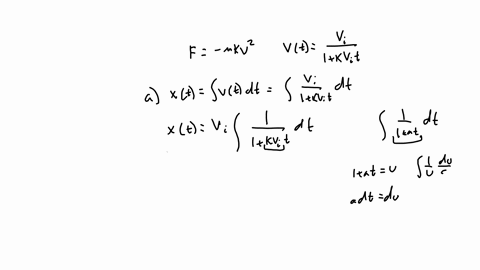 F = -mKv² V(t) = Vi / 1+KVit
a) x(t) = ∫v(t) dt = ∫ Vi / 1+KVit dt
x(t) = Vi ∫ 1 / 1+KVit dt
∫ 1 / 1+at dt
1+at = u ∫ 1/u du/
adt = du